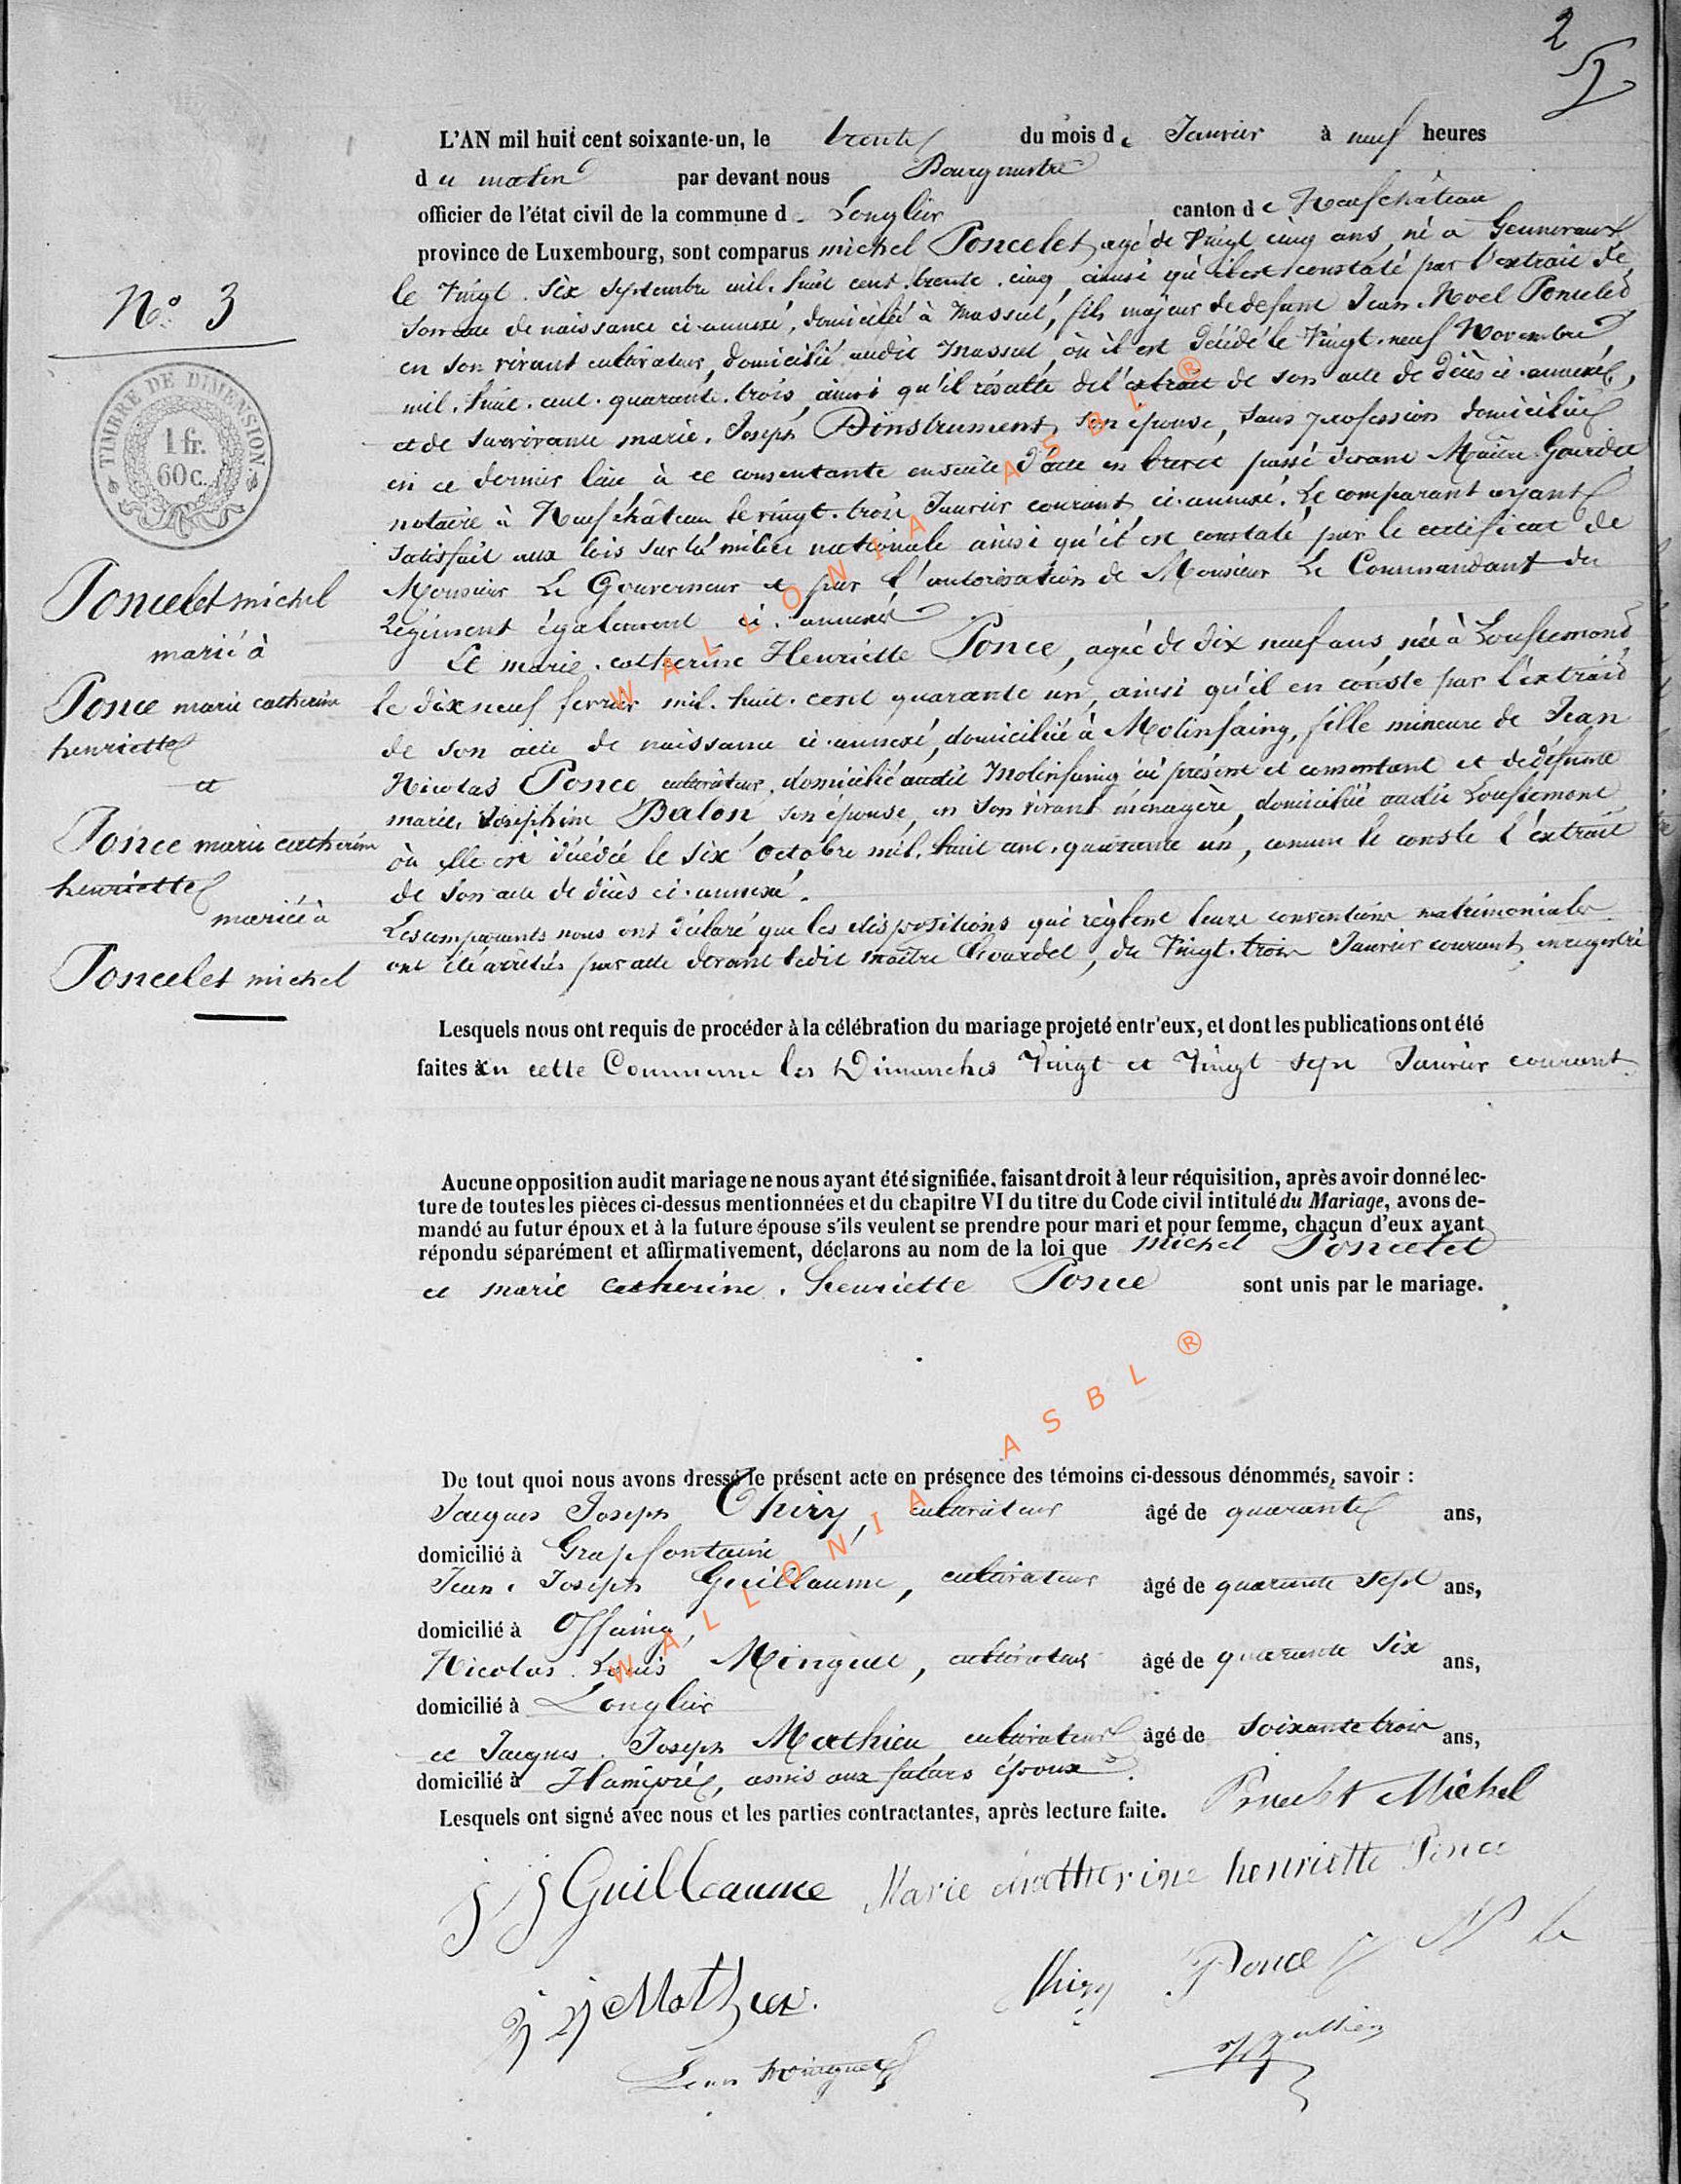 2
L'AN mil huit cent soixante-un, le trente du mois de Janvier à neuf heures
du matin par devant nous Bourgmestre
officier de l'état civil de la commune de Longlier canton de Neufchâteau
province de Luxembourg, sont comparus michel Poncelet, agé de vingt cinq ans, né à Gennevaux
le vingt. six septembre mil. huit cent. trente. cinq, ainsi qu'il est constaté par l'extrait de
son acte de naissance ci-annexé, domicilié à Massul, fils majeur de defunt Jean. Noel Poncelet
en son vivant cultivateur, domicilié audit Massul, où il est décédé le vingt. neuf Novembre
mil. huit. cent. quarante. trois, ainsi qu'il résulte de l'extrait de son acte de décès ci-annexé,
et de survivante marie. Joseph Dinstrument, son épouse, sans profession domiciliée
en ce dernier lieu à ce consentante ensuite d'acte en brevet passé devant Maître Gourdet
notaire à Neufchâteau le vingt. trois Janvier courant, ci-annexé. Le comparant ayant
satisfait aux lois sur la milice nationale ainsi qu'il est constaté par le certificat de
Monsieur Le Gouverneur et par l'autorisation de Monsieur Le Commandant du
Régiment également ci. annexé
Et marie. catherine Henriette Ponce, agée de dix neuf ans, née à Louftemont
le dix neuf fevrier mil. huit. cent quarante un, ainsi qu'il en conste par l'extrait
de son acte de naissance ci-annexé, domiciliée à Molinfaing, fille mineure de Jean
Nicolas Ponce cultivateur, domicilié audit Molinfaing ici présent et consentant et de défunte
marie. Joséphine Balon son épouse, en son vivant ménagère, domiciliée audit Louftemont
où elle est décédée le six octobre mil. huit cent. quarante un, comme le conste l'extrait
de son acte de décès ci-annexé.
Les comparants nous ont déclaré que les dispositions qui règlent leurs conventions matrimoniales
ont été arrêtées par acte devant ledit maître Gourdet, du vingt. trois Janvier courant, enregistré
N° 3
TIMBRE DE DIMENSION.
1 fr.
60 c.
Poncelet michel
marié à
Ponce marie catherine
henriette
et
Ponce marie catherine
henriette
mariée à
Poncelet michel
Lesquels nous ont requis de procéder à la célébration du mariage projeté entr'eux, et dont les publications ont été
faites en cette Commune les Dimanches vingt et vingt sept Janvier courant.
Aucune opposition audit mariage ne nous ayant été signifiée, faisant droit à leur réquisition, après avoir donné lec-
ture de toutes les pièces ci-dessus mentionnées et du chapitre VI du titre du Code civil intitulé du Mariage, avons de-
mandé au futur époux et à la future épouse s'ils veulent se prendre pour mari et pour femme, chaçun d'eux ayant
répondu séparément et affirmativement, déclarons au nom de la loi que michel Poncelet
et marie catherine. henriette Ponce sont unis par le mariage.
De tout quoi nous avons dressé le présent acte en présence des témoins ci-dessous dénommés, savoir :
Jacques Joseph Thiry, cultivateur âgé de quarante ans,
domicilié à Grapfontaine
Jean. Joseph Guillaume, cultivateur âgé de quarante sept ans,
domicilié à Offaing,
Nicolas. Louis Minguet, cultivateur âgé de quarante six ans,
domicilié à Longlier
et Jacques. Joseph Mathieu cultivateur âgé de soixante trois ans,
domicilié à Hamipré, amis aux futurs époux
Lesquels ont signé avec nous et les parties contractantes, après lecture faite. Poncelet Michel
j j Guillaume Marie catherine henriette Ponce
j j Mathieu. Thiry Ponce
WALLONIA ASBL ®
WALLONIA ASBL ®